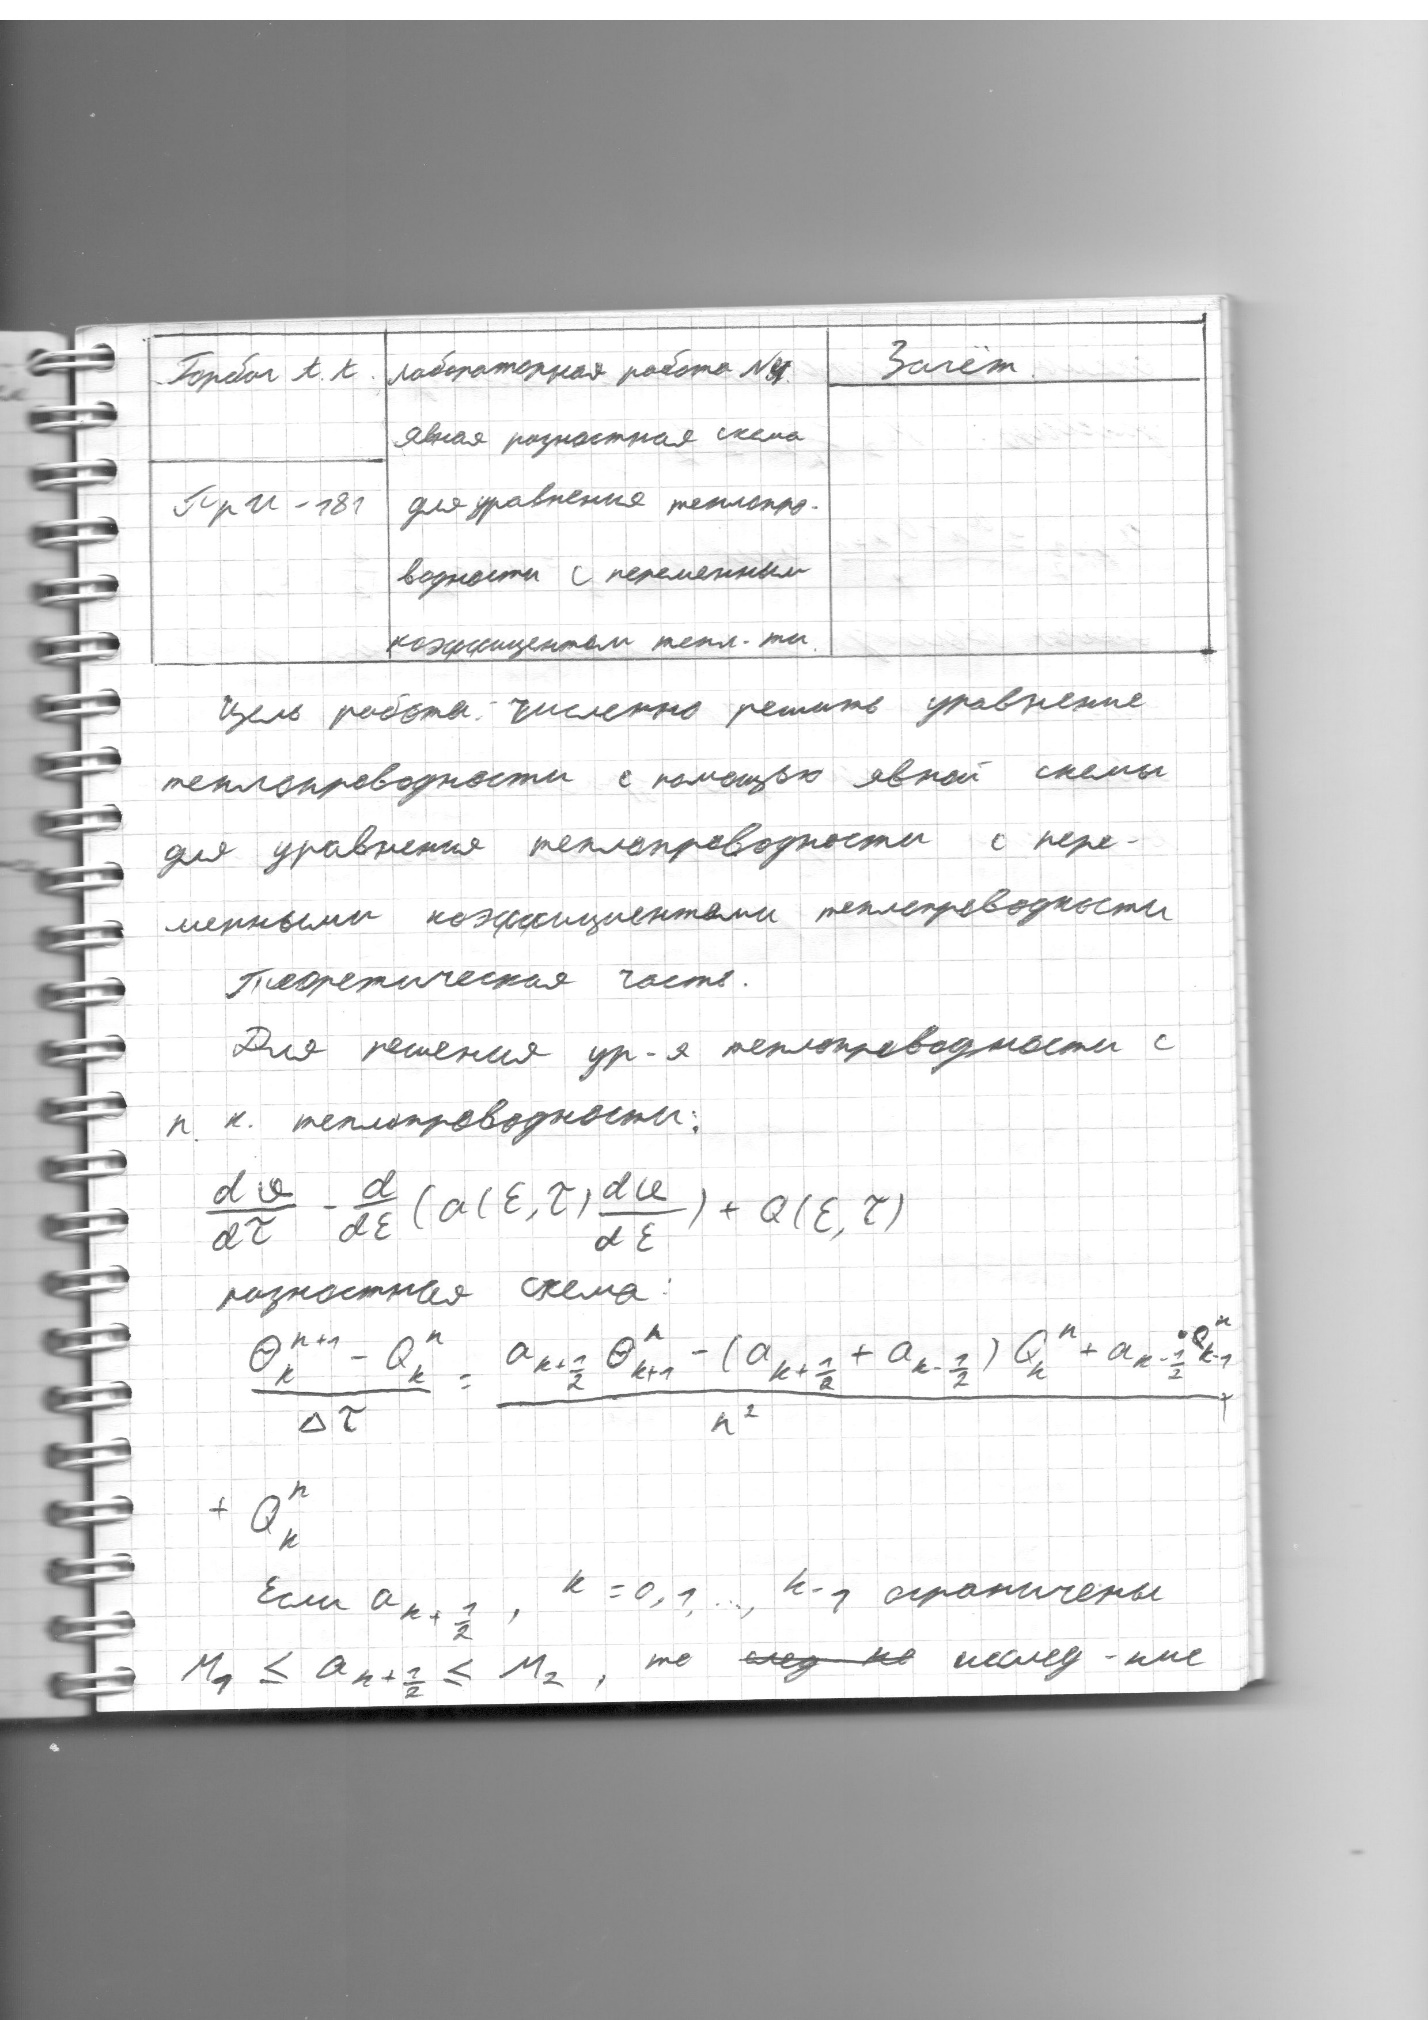 Горбач А. А.
ПрИ-181
Лабораторная работа №
явная разностная схема
для уравнения теплопро-
водности с переменным
коэффициентом тепл-ти.
Зачёт.
Цель работы: численно решить уравнение
теплопроводности с помощью явной схемы
для уравнения теплопроводности с пере-
менными коэффициентами теплопроводности
Теоретическая часть.
Для решения ур-я теплопроводности с
п. к. теплопроводности:
dυ/dτ - d/dξ (a(ξ,τ) dυ/dξ) + Q(ξ,τ)
разностная схема:
(Θ_k^{n+1} - Q_k^n)/Δτ = (a_{k+1/2} Θ_{k+1}^n - (a_{k+1/2} + a_{k-1/2}) Q_k^n + a_{k-1/2} · Q_{k-1}^n)/h² +
+ Q_k^n
Если a_{k+1/2}, k = 0, 1, ..., k-1 ограничены
M_1 ≤ a_{k+1/2} ≤ M_2, то исслед-ние